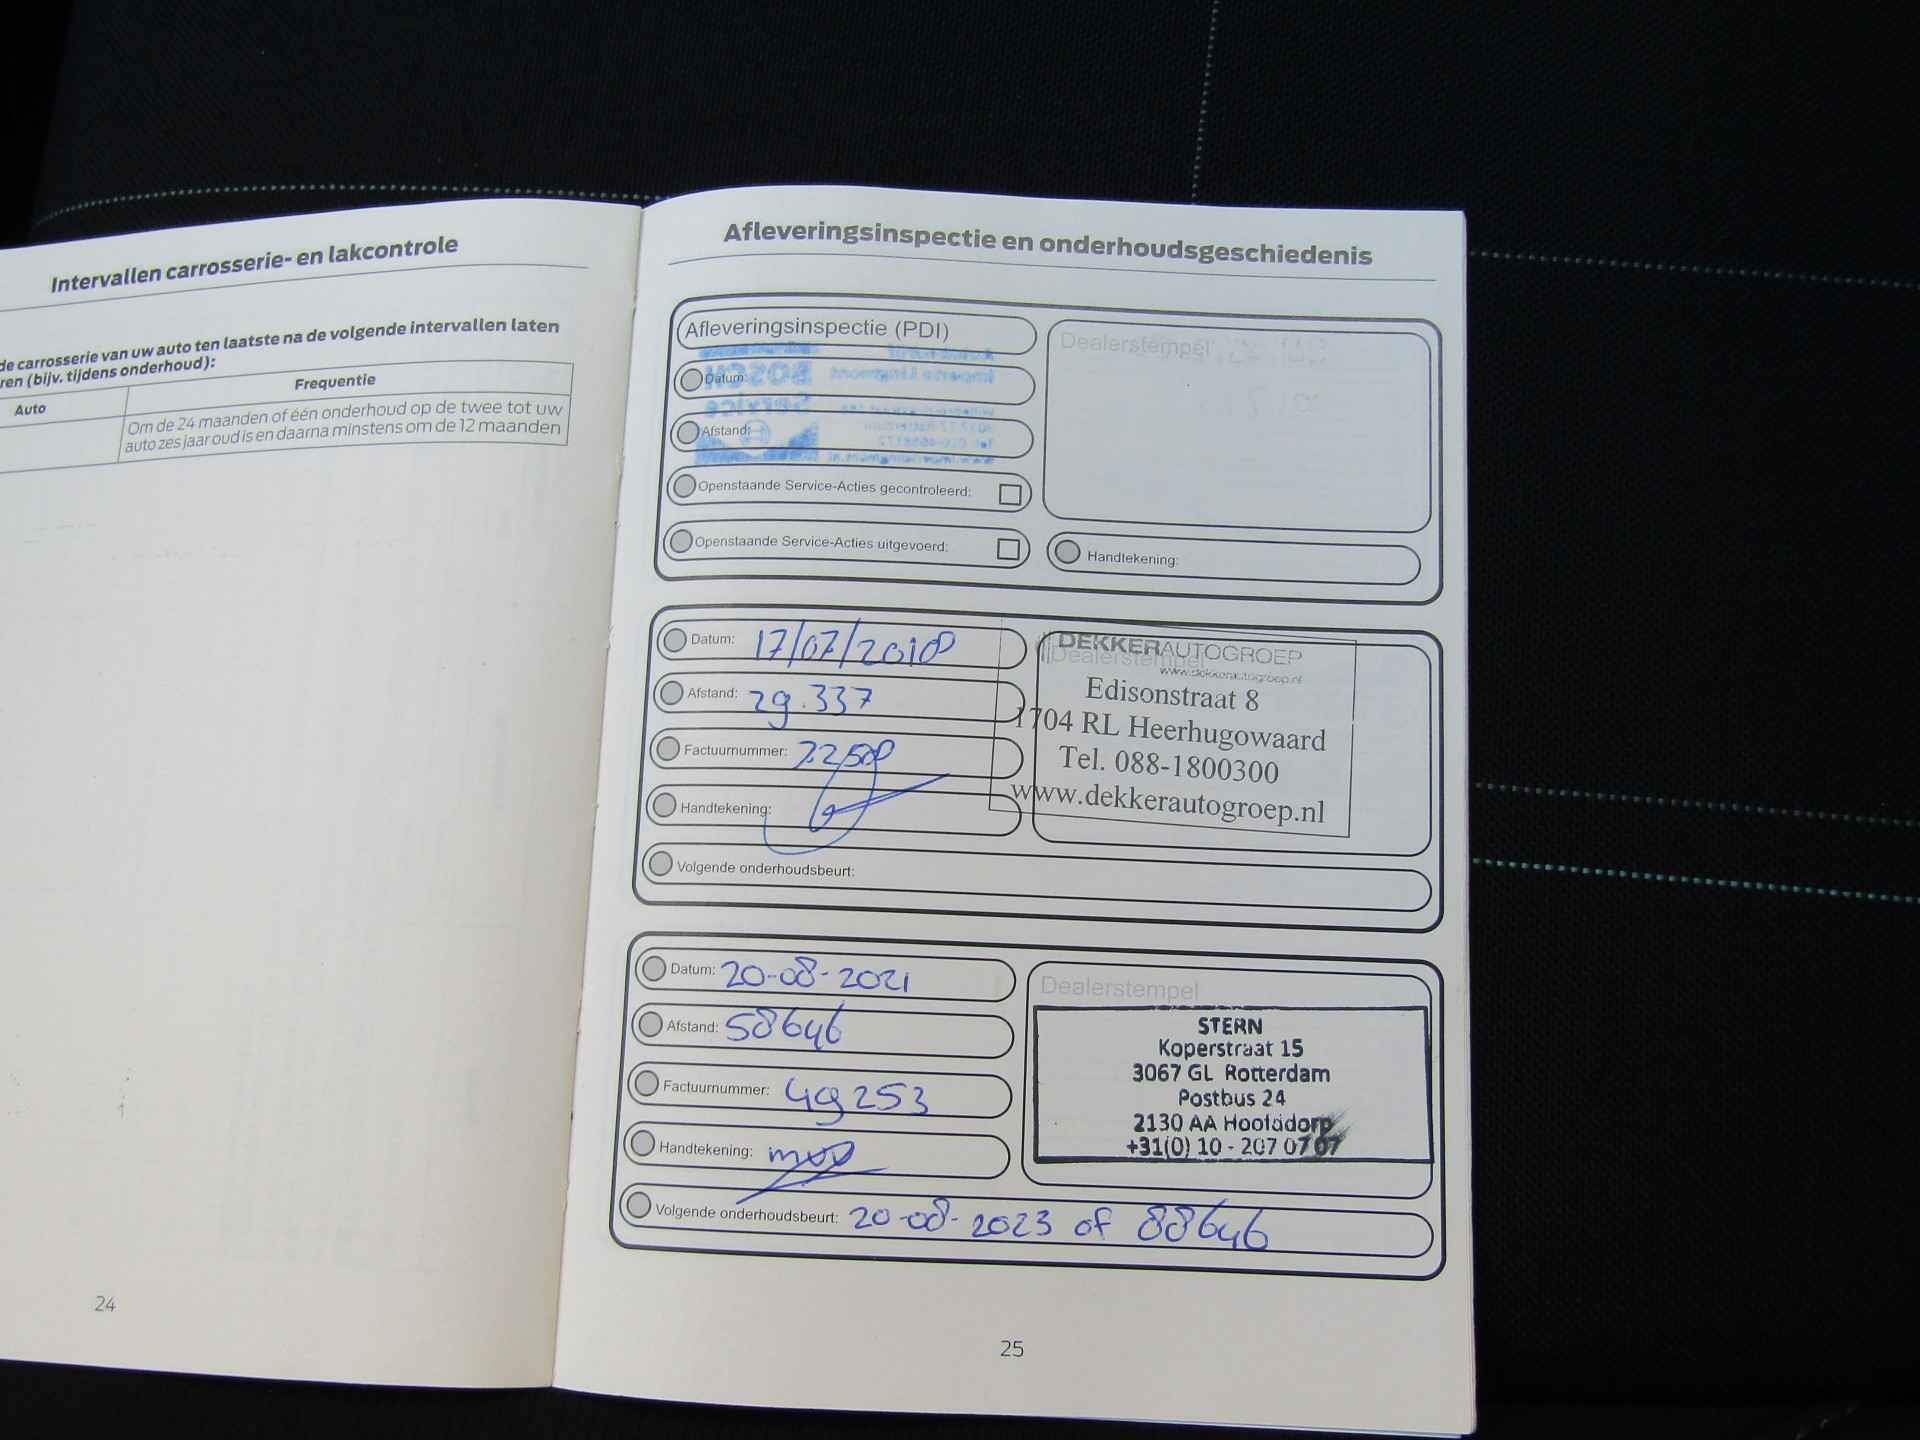 Intervallen carrosserie- en lakcontrole
de carrosserie van uw auto ten laatste na de volgende intervallen laten
ren (bijv. tijdens onderhoud):
Auto
Frequentie
Om de 24 maanden of één onderhoud op de twee tot uw
auto zes jaar oud is en daarna minstens om de 12 maanden
24
Afleveringsinspectie en onderhoudsgeschiedenis
Afleveringsinspectie (PDI)
Datum:
Afstand:
Openstaande Service-Acties gecontroleerd:
Openstaande Service-Acties uitgevoerd:
Dealerstempel
Handtekening:
Datum: 17/07/2018
Afstand: 29.337
Factuurnummer: 72508
Handtekening:
Volgende onderhoudsbeurt:
Dealerstempel
DEKKERAUTOGROEP
www.dekkerautogroep.nl
Edisonstraat 8
1704 RL Heerhugowaard
Tel. 088-1800300
www.dekkerautogroep.nl
Datum: 20-08-2021
Afstand: 58646
Factuurnummer: 49253
Handtekening:
Volgende onderhoudsbeurt: 20-08-2023 of 88646
Dealerstempel
STERN
Koperstraat 15
3067 GL Rotterdam
Postbus 24
2130 AA Hoofddorp
+31(0) 10 - 207 07 07
25